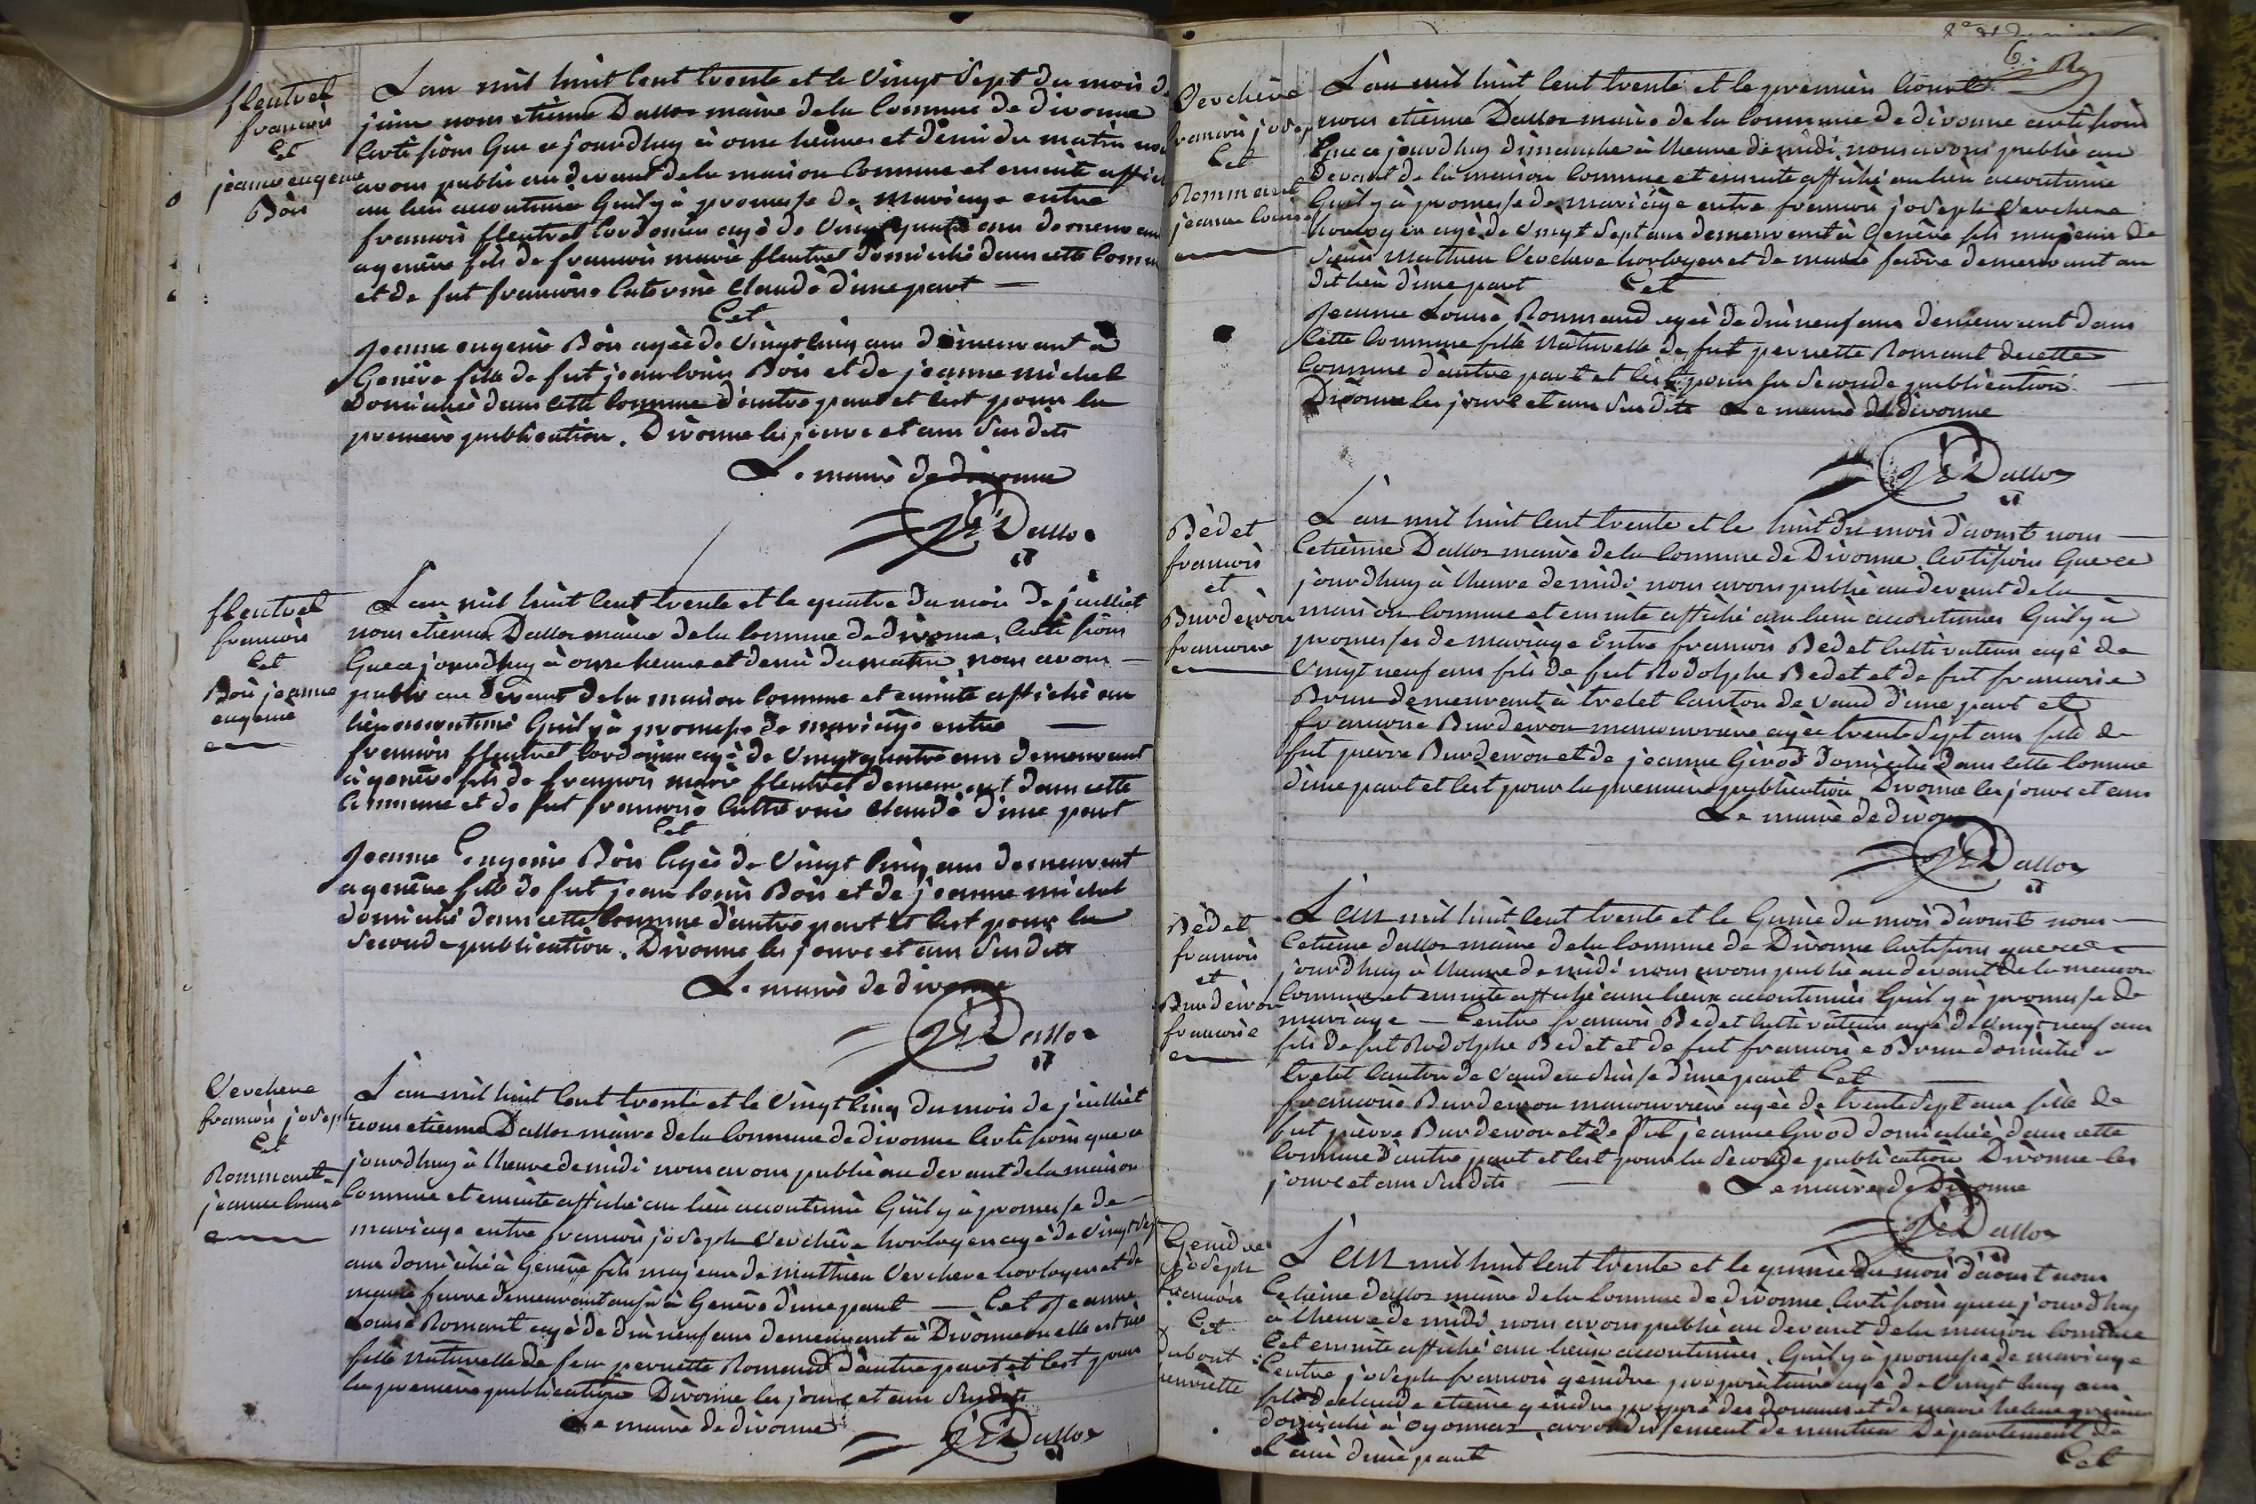 fleutret
francois
Cet
jeanne eugenie
Bois
Lan mil huit Cent trente et le Vingt Sept du mois de
juin nous etienne Dallos maire de la Commune de divonne
Certifions Que ce jourdhuy à onze heures et demi du matin nous
avons publié au devant de la maison Commune et ensuite affiché
au lieu accoutumé Quil y à promesse de mariage entre
francois fleutret Cordonier agé de Vingt quatre ans demeurant
a genève fils de francois marie fleutret Domicilié dans cette Commune
et de fut francoise Caterine Claude d'une part —
Cet
Jeanne eugenie Bois agèe de Vingt Cinq ans demeurant à
Genève fille de fut jean louis Bois et de jeanne michel
Domiciliée dans cette Commune d'autre part et Cest pour la
premiere publication. Divonne les jours et ans Sus dits
Le maire de divonne
JE Dallos
fleutret
francois
Cet
Bois jeanne
eugenie
Lan mil huit Cent trente et le quatre du mois de juilliet
nous etienne Dallos maire de la Commune de divonne, Certifions
Que ce jourdhuy à onze heures et demi du matin nous avons —
publié au devant de la maison Commune et ensuite affiché au
lieu accoutumé Quil y à promesse de mariage entre —
francois fleutret Cordonier agé de Vingt quatre ans demeurant
à genève fils de francois marie fleutret demeurant dans cette
Commune et de fut francoise Catterine Claude d'une part
Cet
Jeanne Eugenie Bois Agèe de Vingt Cinq ans demeurant
a genève fille de fut jean louis Bois et de jeanne michel
domicilié dans cette Commune d'autre part et Cest pour la
Seconde publication. Divonne les jours et ans Sus dits
Le maire de divonne
JE Dallos
Verchere
francois joseph
Cet
Rommant
jeanne louise
Lan mil huit Cent trente et le Vingt Cinq du mois de juilliet
nous etienne Dallos maire de la Commune de divonne Certifions que ce
jourdhuy à lheure de midi nous avons publié au devant de la maison
Commune et ensuite affiché au lieu accoutumé Quil y à promesse de
mariage entre francois joseph Verchère horloger agé de Vingt Sept
ans domicilié à Genève fils majeur de mathieu Verchere horloger et de
marie favre demeurant aussi à Genève d'une part — Cet Jeanne
Louise Romant agé de dix neuf ans demeurant à Divonne ou elle est née
fille naturelle de feu pernette Romand d'autre part et Cest pour
la première publication Divonne les jours et ans Sus dits
Le maire de divonne
JE Dallos
6
Verchère
francois joseph
Cet
Rommant
jeanne louise
Lan mil huit Cent trente et le premier Aoust
nous etienne Dallos maire de la Commune de divonne certifions
Que ce jourdhuy dimanche à lheure de midi nous avons publié au
devant de la maison Commune et ensuite affiché au lieu accoutumé
Quil y à promesse de mariage entre francois joseph Verchere
horloger agé de Vingt Sept ans demeurant à Genève fils majeur de
Sieur Mathieu Verchere horloger et de marie favre demeurant au
dit lieu d'une part Cet
Jeanne Louise Rommand agée de dix neuf ans demeurant dans
Cette Commune fille Naturelle de fut pernette Romant de cette
Commune d'autre part et Cest pour la Seconde publication —
Divonne les jours et ans Sus dits Le maire de divonne
JE Dallos
Bèdet
francois
et
Burdèron
francoise
Lan mil huit Cent trente et le huit du mois d'aoust nous —
Cetienne Dallos maire de la Commune de Divonne Certifions Que ce
jourdhuy à lheure de midi nous avons publié au devant de la
maison Commune et ensuite affiché aux lieux accoutumés Quil y à
promesses de mariage Entre francois Bedet Cultivateur agé de
Vingt neuf ans fils de fut Rodolphe Bedet et de fut francoise
Brun demeurant à trelet Canton de Vaud d'une part et
francoise Burderon manouvriere agée trente Sept ans fille de
fut pierre Burderon et de jeanne Girod domiciliée dans cette Commune
d'une part et Cest pour la premiere publication Divonne les jours et ans
Le maire de divonne
JE Dallos
Bèdet
francois
et
Burdèron
francoise
Lan mil huit Cent trente et le Quinze du mois d'aoust nous —
Cetienne dallos maire de la Commune de Divonne Certifions que ce
jourdhuy à lheure de midi nous avons publié au devant de la maison
Commune et ensuite affiché aux lieux accoutumés Quil y à promesse de
mariage — Centre francois Bedet Cultivateur agé de Vingt neuf ans
fils de fut Rodolphe Bedet et de fut francoise Brun domicilié a
trelet Canton de Vaud en Suisse d'une part Cet —
francoise Burderon manouvriere agèe de trente Sept ans fille de
fut pierre Burderon et de fut jeanne Girod domiciliée dans cette
Commune d'autre part et Cest pour la Seconde publication Divonne les
jours et ans Sus dits — Le maire de Divonne
JE Dallos
Genidre
joseph
francois
Cet
dubout
henriette
Lan mil huit Cent trente et le quinze du mois d'aoust nous
Cetienne dallos maire de la Commune de divonne Certifions que ce jourdhuy
à lheure de midi nous avons publié au devant de la maison Commune
Cet ensuite affiché aux lieux accoutumés. Quil y à promesse de mariage
Centre joseph francois genidre propriétaire agé de Vingt Cinq ans
fils de claude etiene genidre préposé des douanes et de marie helene
domicilié à Oyonnax arrondissement de nantua Département de
l'ain d'une part Cet